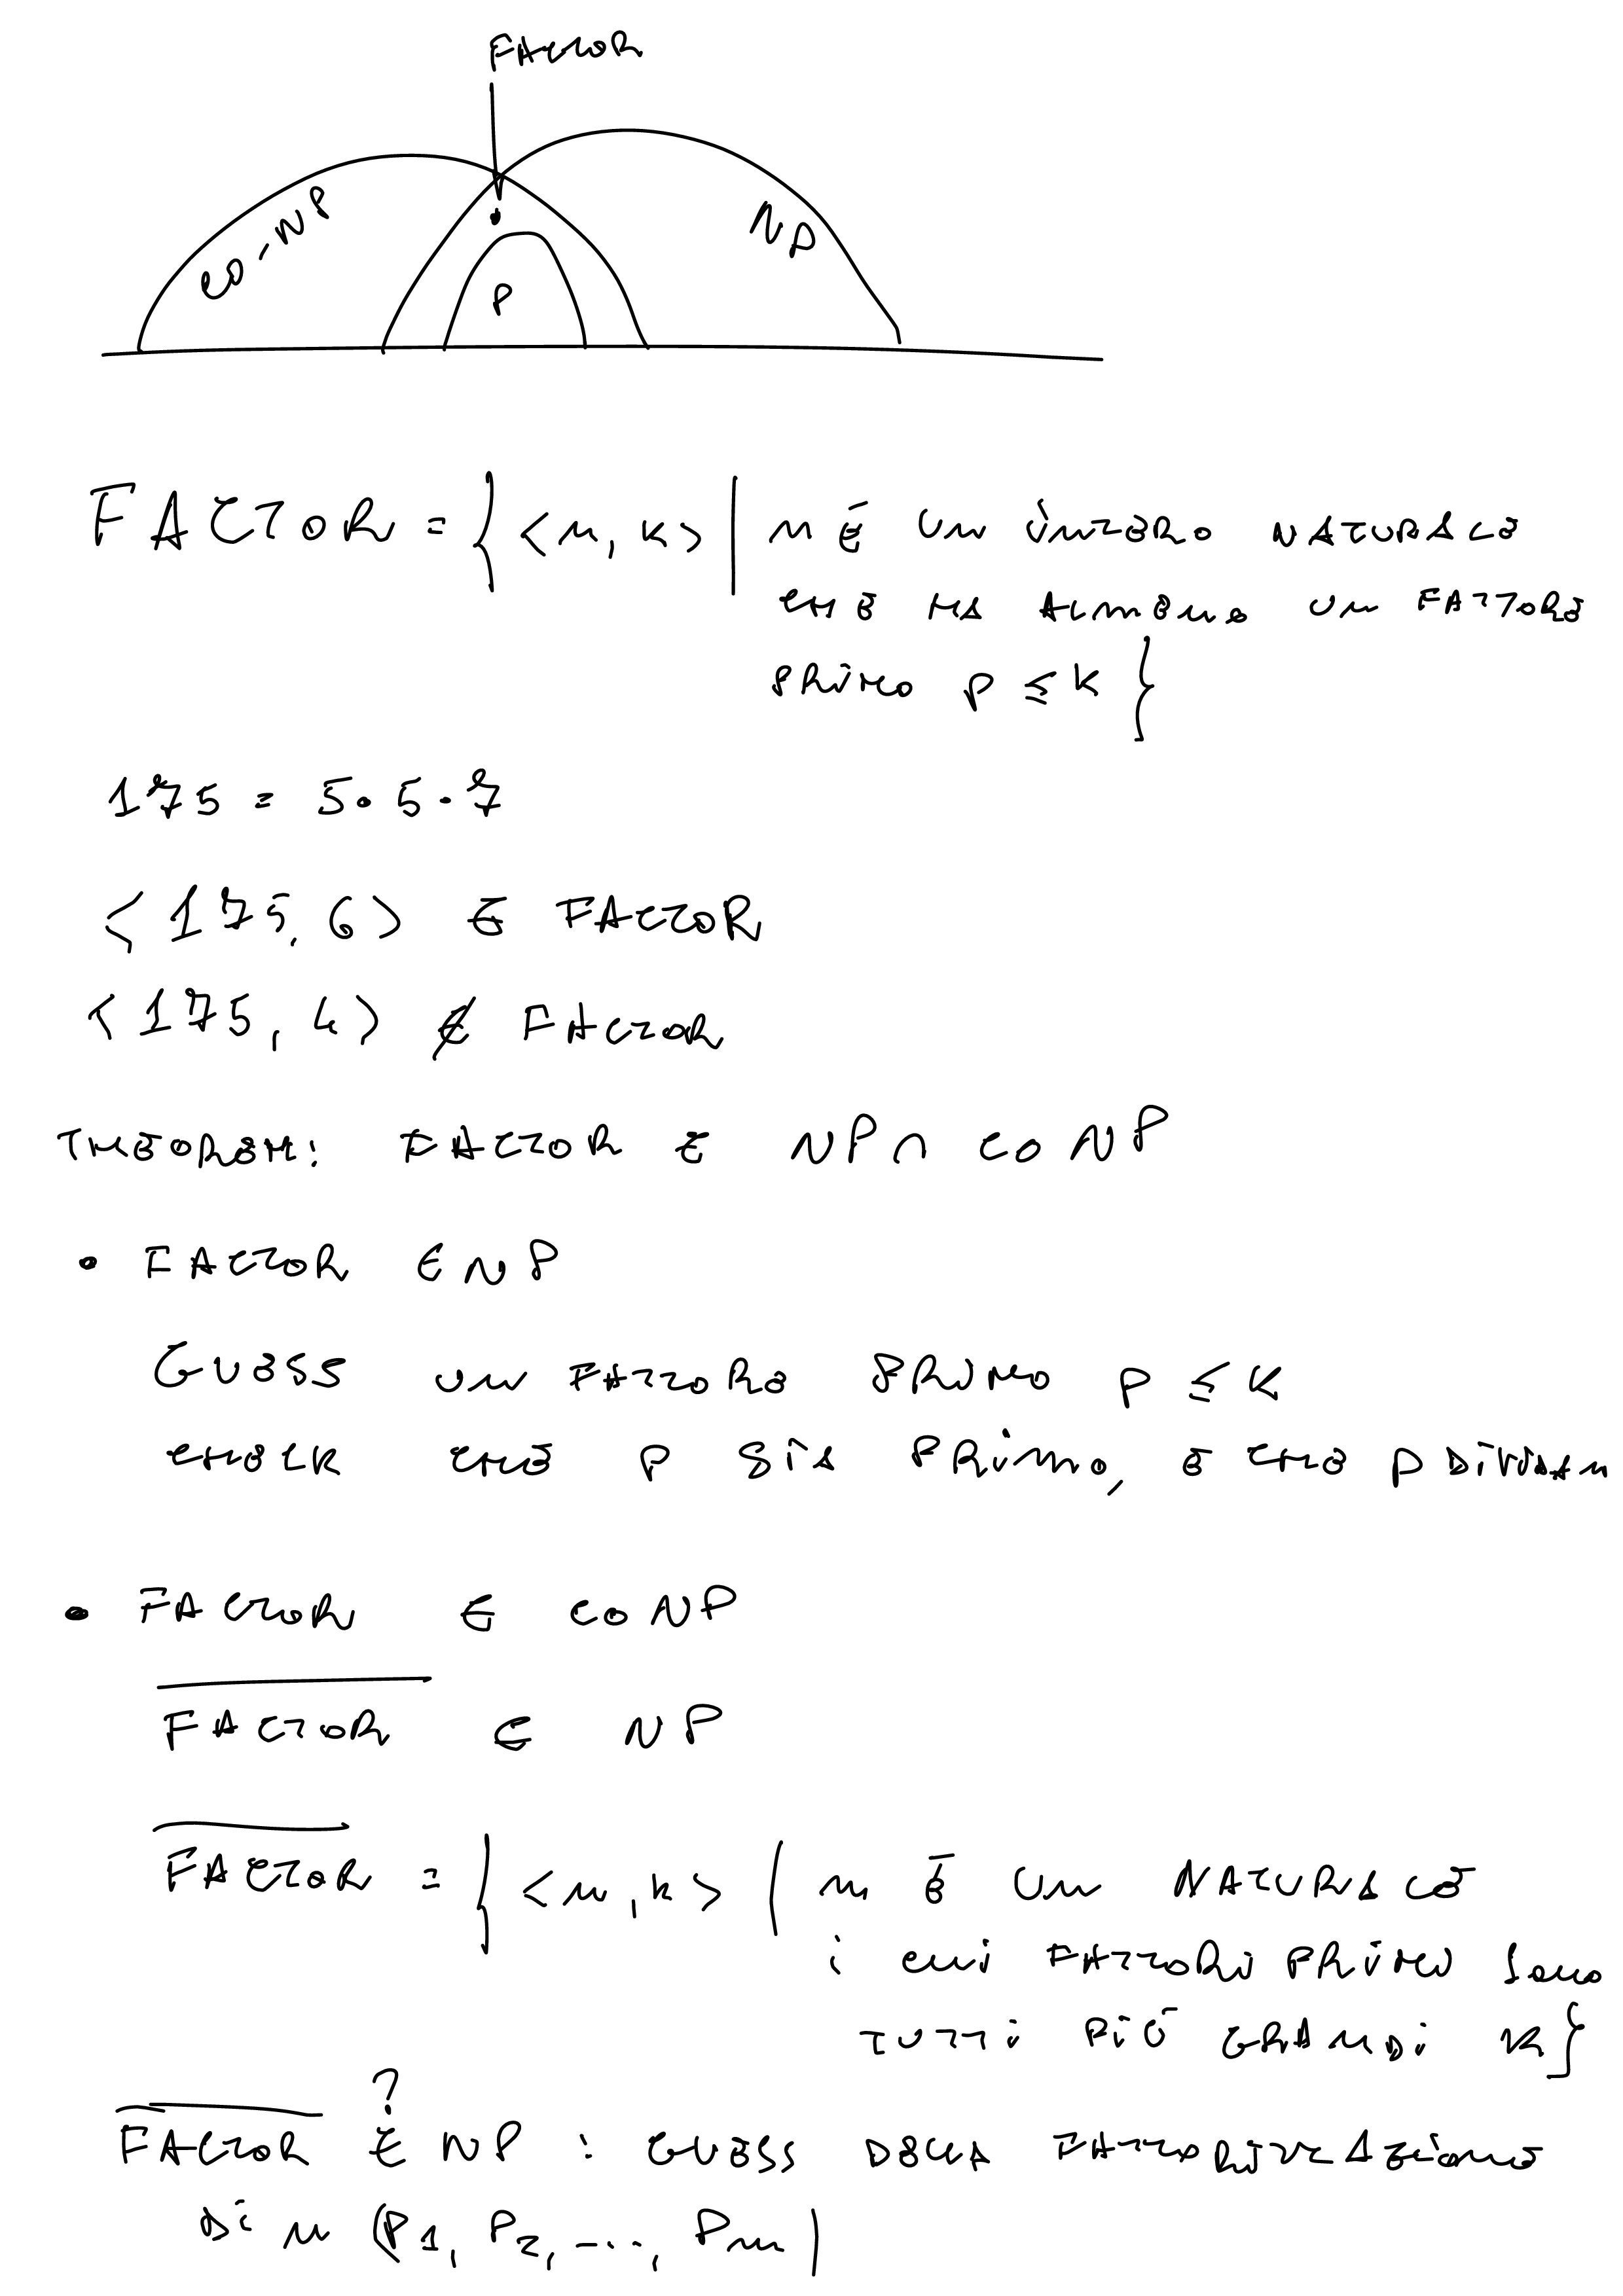 FACTOR
CO-NP
NP
P
FACTOR = { <n, k> | n È UN INTERO NATURALE
CHE HA ALMENO UN FATTORE
PRIMO P ≤ K }
175 = 5·5·7
<175, 6> ∈ FACTOR
<175, 4> ∉ FACTOR
THEOREM: FACTOR ∈ NP ∩ CO NP
• FACTOR ∈ NP
GUESS UN FATTORE PRIMO P ≤ K
CHECK CHE P SIA PRIMO, E CHE P DIVIDA n
• FACTOR ∈ CO NP
\overline{FACTOR} ∈ NP
\overline{FACTOR} = { <n, k> | n È UN NATURALE
I CUI FATTORI PRIMI SONO
TUTTI PIÙ GRANDI K }
?
\overline{FACTOR} ∈ NP : GUESS DELLA FATTORIZZAZIONE
DI n (P1, P2, ..., Pm)